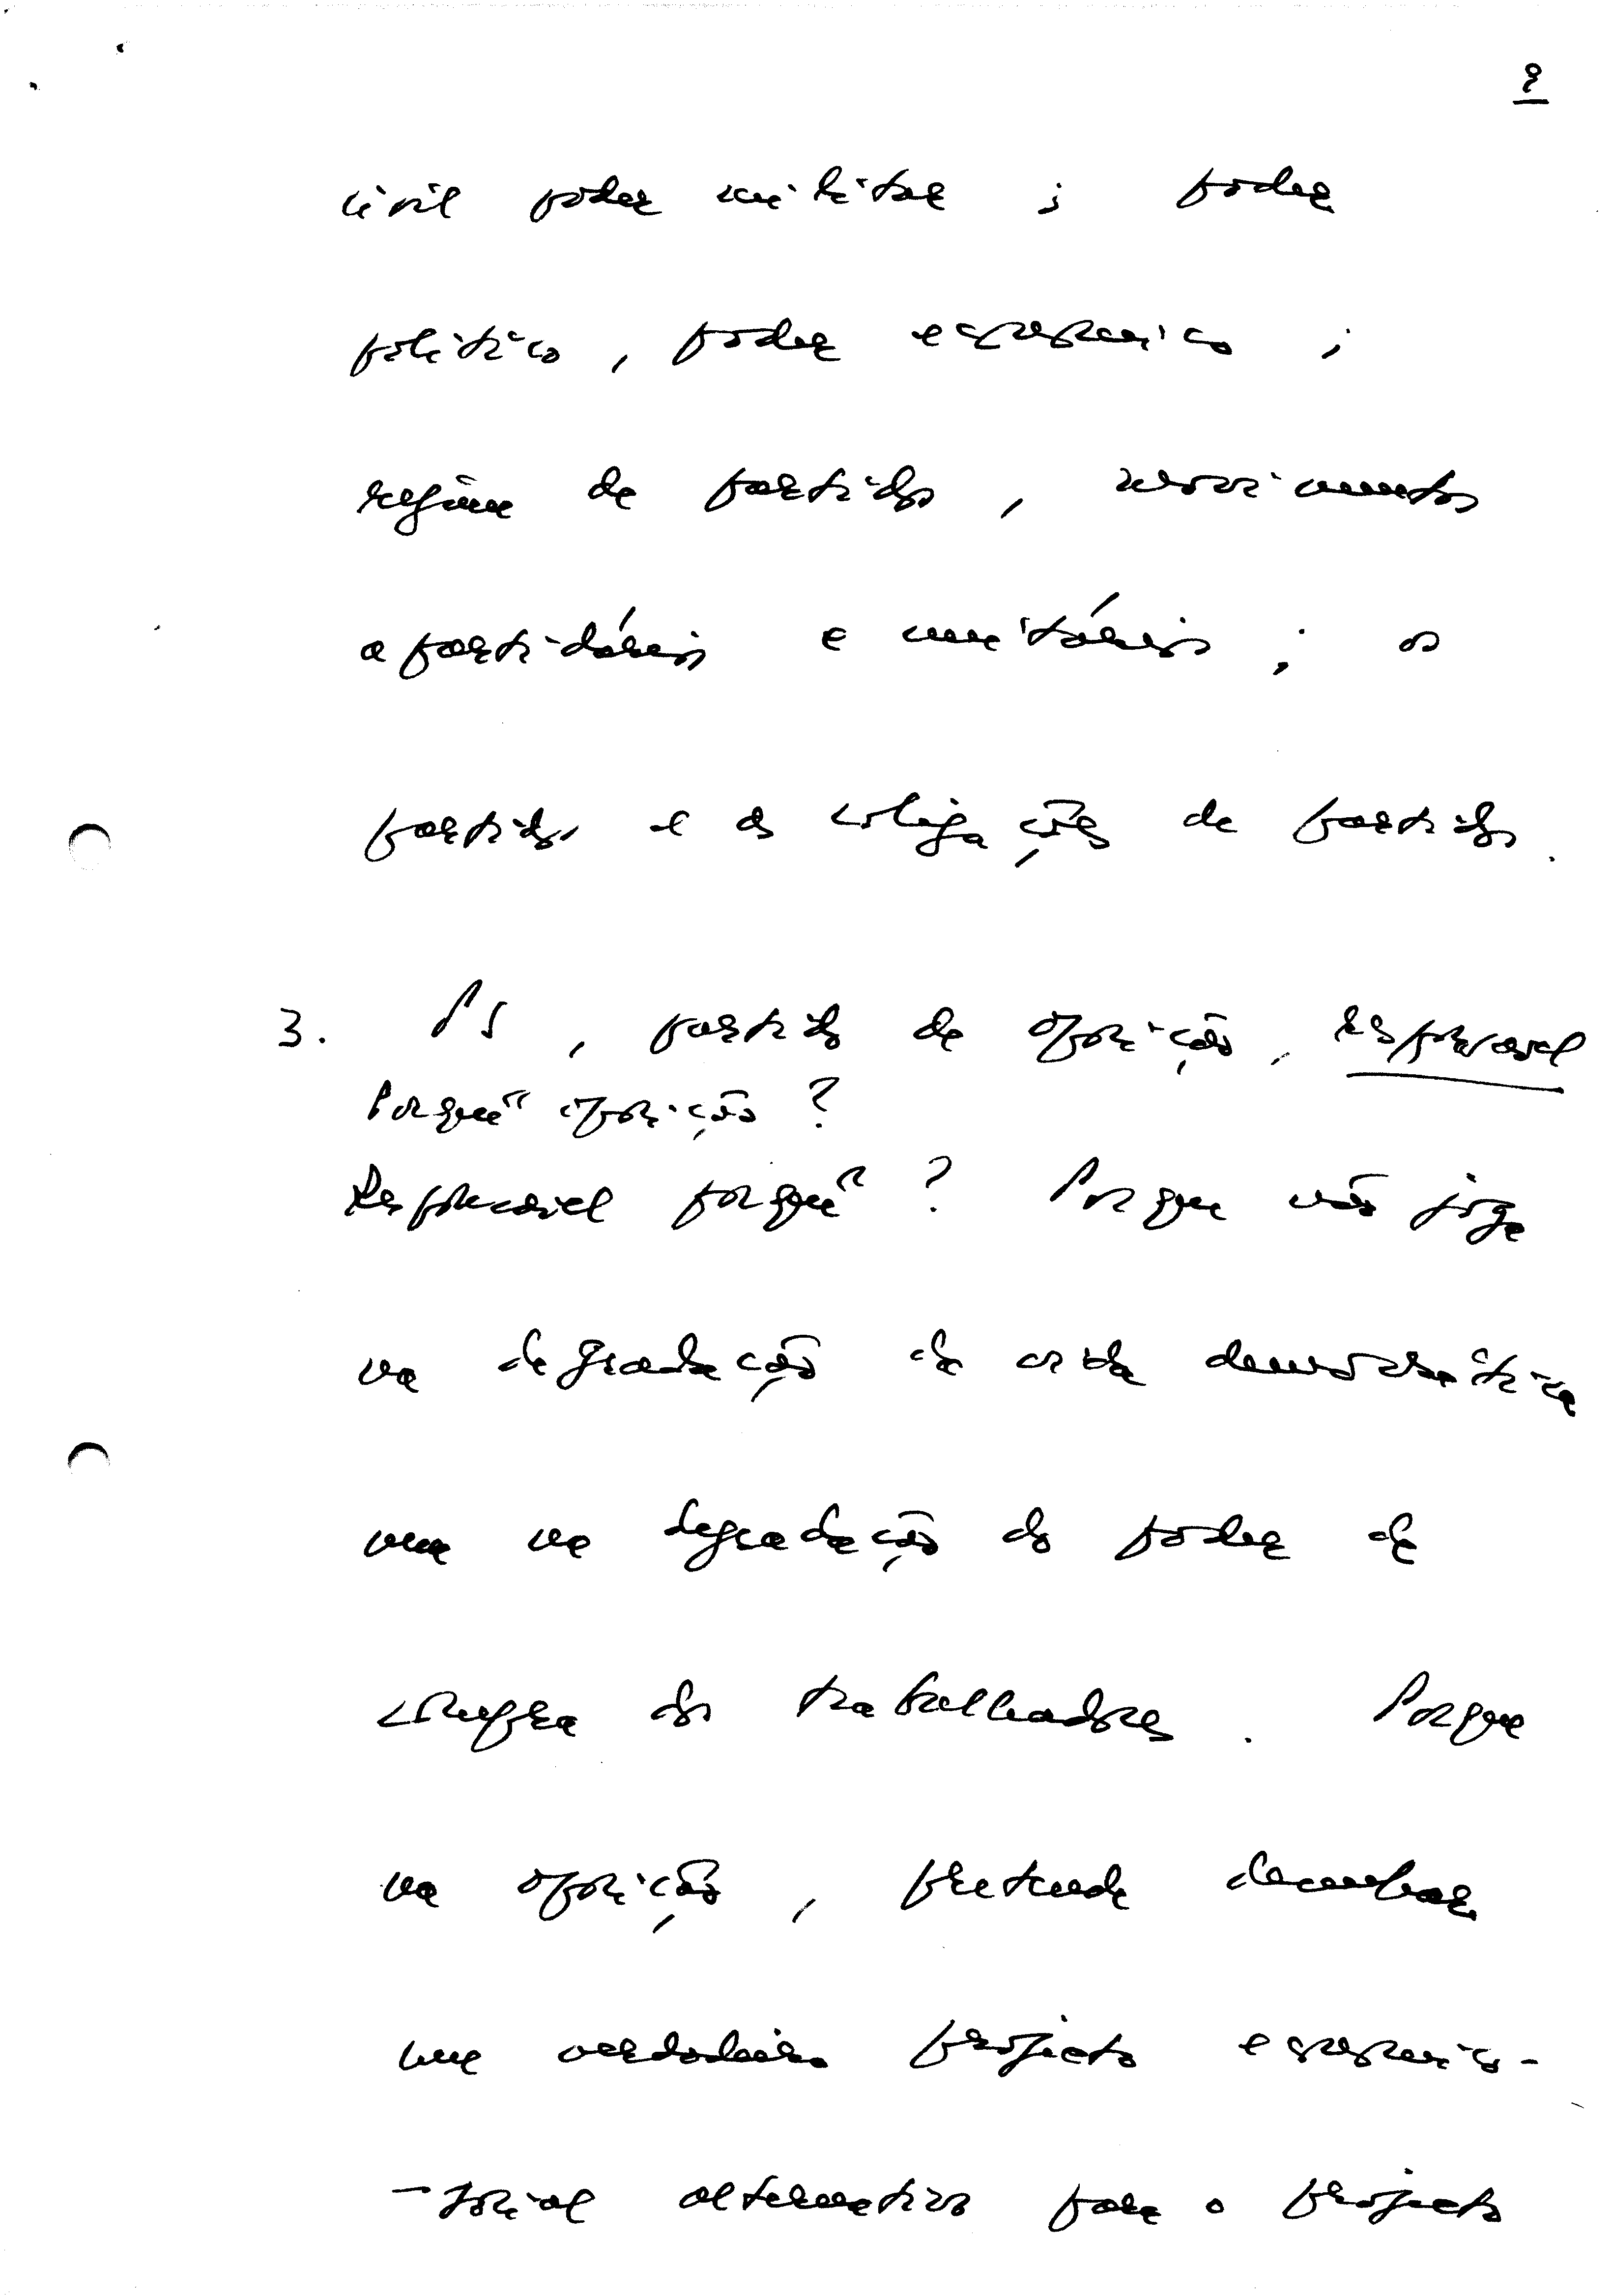 8
civil poder militar ; poder
político, poder económico ;
regime de partidos, movimentos
apartidários e unitários ; os
partidos e as coligações de partidos.
3. PS, partido de oposição, responsável
Porquê oposição ?
Responsável porquê ? Porque não joga
na degradação da vida democrática
nem na degradação do poder de
compra dos trabalhadores. Porque
na oposição, pretende
um verdadeiro projecto económico-
-social alternativo para o projecto